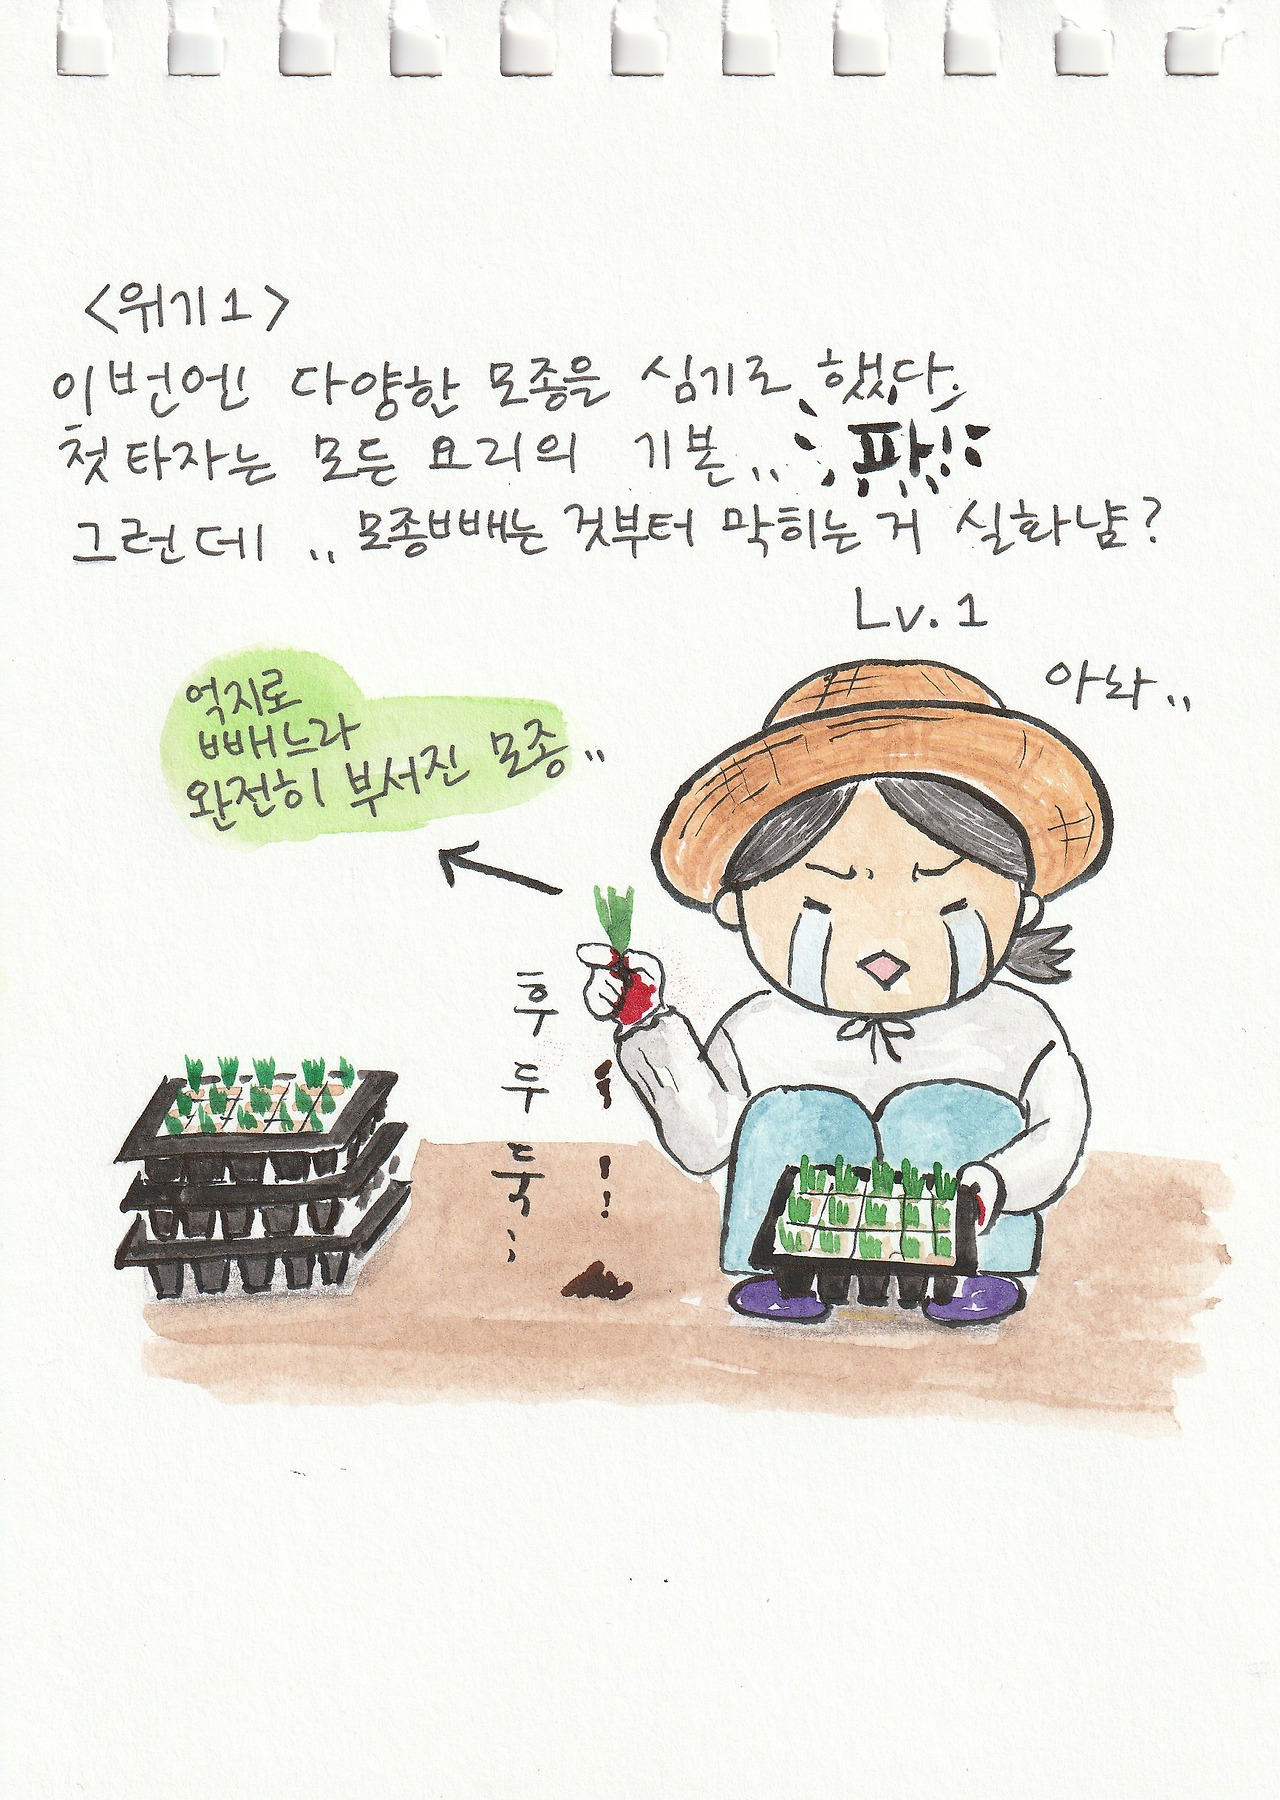 <위기 1>
이번엔 다양한 모종을 심기로 했다.
첫타자는 모든 요리의 기본.. 파!
그런데 .. 모종빼는 것부터 막히는 거 실화냠?
Lv. 1
아놔..
억지로
빼느라
완전히 부서진 모종..
후
두
둑;